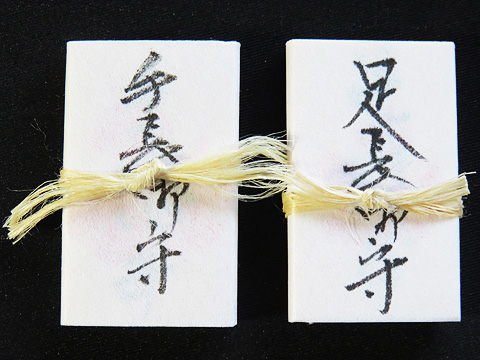 足長御守
手長御守